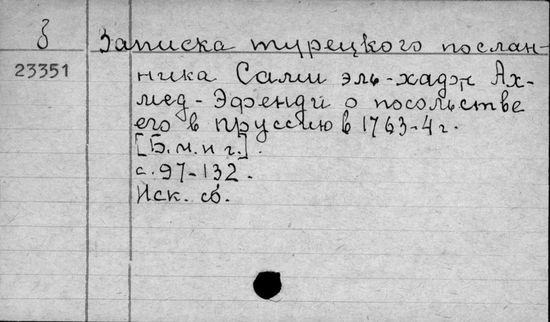 З
Записка турецкого послан-
23351
ника Сами эль-хадэи Ах-
мед-Эфенди о посольстве
его в Пруссию в 1763-4 г.
[Б.м.и г.].
с. 97-132.
Иск. сб.